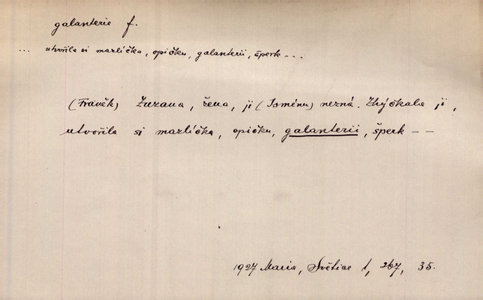 galanterie f.
... utvořila si mazlíčka, opičku, galanterii, šperk - - -
(Fráněk) Zuzana, žena, ji (Isménu) nezná. Zhýčkala ji,
utvořila si mazlíčka, opičku, galanterii, šperk - -
1927 Maria, Světice 1, 267, 35.